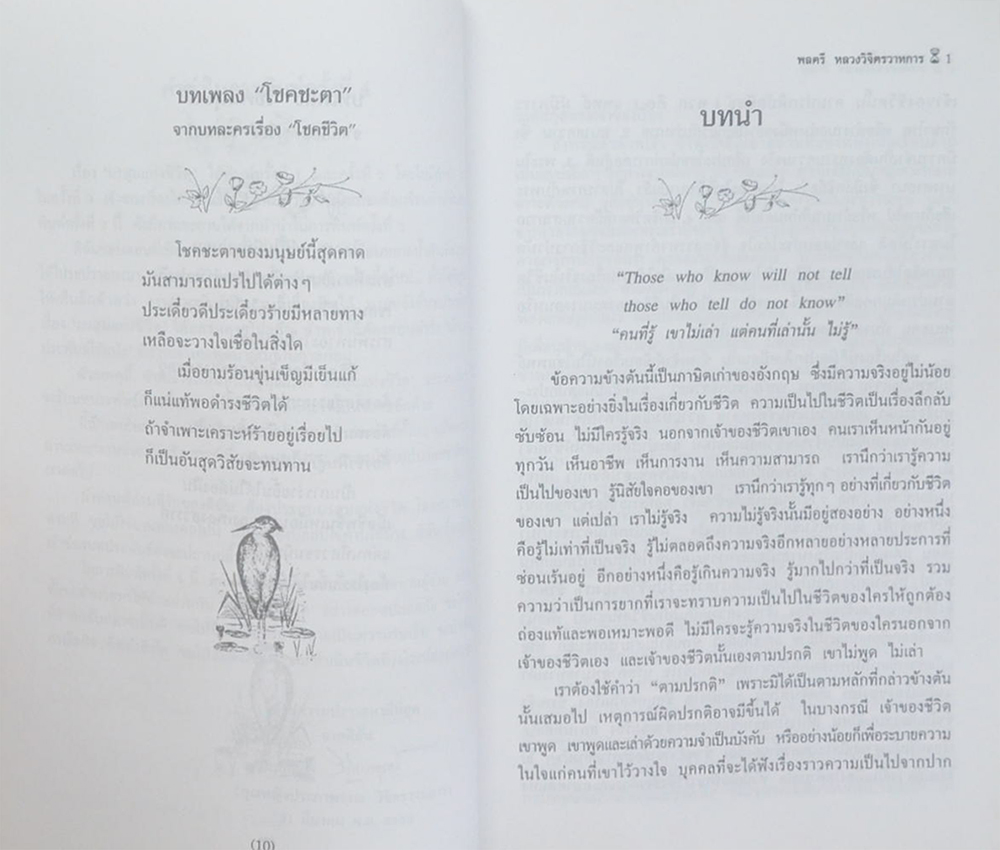 บทเพลง “โชคชะตา”
จากบทละครเรื่อง “โชคชีวิต”
โชคชะตาของมนุษย์นี้สุดคาด
มันสามารถแปรไปได้ต่างๆ
ประเดี๋ยวดีประเดี๋ยวร้ายมีหลายทาง
เหลือจะวางใจเชื่อในสิ่งใด
เมื่อยามร้อนขุ่นเข็ญมีเย็นแก้
ก็แน่แท้พอดำรงชีวิตได้
ถ้าจำเพาะเคราะห์ร้ายอยู่เรื่อยไป
ก็เป็นอันสุดวิสัยจะทนทาน
(10)
พลตรี หลวงวิจิตรวาทการ 1
บทนำ
“Those who know will not tell
those who tell do not know”
“คนที่รู้ เขาไม่เล่า แต่คนที่เล่านั้น ไม่รู้”
ข้อความข้างต้นนี้เป็นภาษิตเก่าของอังกฤษ ซึ่งมีความจริงอยู่ไม่น้อย
โดยเฉพาะอย่างยิ่งในเรื่องเกี่ยวกับชีวิต ความเป็นไปในชีวิตเป็นเรื่องลึกลับ
ซับซ้อน ไม่มีใครรู้จริง นอกจากเจ้าของชีวิตเขาเอง คนเราเห็นหน้ากันอยู่
ทุกวัน เห็นอาชีพ เห็นการงาน เห็นความสามารถ เรานึกว่าเรารู้ความ
เป็นไปของเขา รู้นิสัยใจคอของเขา เรานึกว่าเรารู้ทุกๆ อย่างที่เกี่ยวกับชีวิต
ของเขา แต่เปล่า เราไม่รู้จริง ความไม่รู้จริงนั้นมีอยู่สองอย่าง อย่างหนึ่ง
คือรู้ไม่เท่าที่เป็นจริง รู้ไม่ตลอดถึงความจริงอีกหลายอย่างหลายประการที่
ซ่อนเร้นอยู่ อีกอย่างหนึ่งคือรู้เกินความจริง รู้มากไปกว่าที่เป็นจริง รวม
ความว่าเป็นการยากที่เราจะทราบความเป็นไปในชีวิตของใครให้ถูกต้อง
ถ่องแท้และพอเหมาะพอดี ไม่มีใครจะรู้ความจริงในชีวิตของใครนอกจาก
เจ้าของชีวิตเอง และเจ้าของชีวิตนั้นเองตามปรกติ เขาไม่พูด ไม่เล่า
เราต้องใช้คำว่า “ตามปรกติ” เพราะมิได้เป็นตามหลักที่กล่าวข้างต้น
นั้นเสมอไป เหตุการณ์ผิดปรกติอาจมีขึ้นได้ ในบางกรณี เจ้าของชีวิต
เขาพูด เขาพูดและเล่าด้วยความจำเป็นบังคับ หรืออย่างน้อยก็เพื่อระบายความ
ในใจแก่คนที่เขาไว้วางใจ บุคคลที่จะได้ฟังเรื่องราวความเป็นไปจากปาก